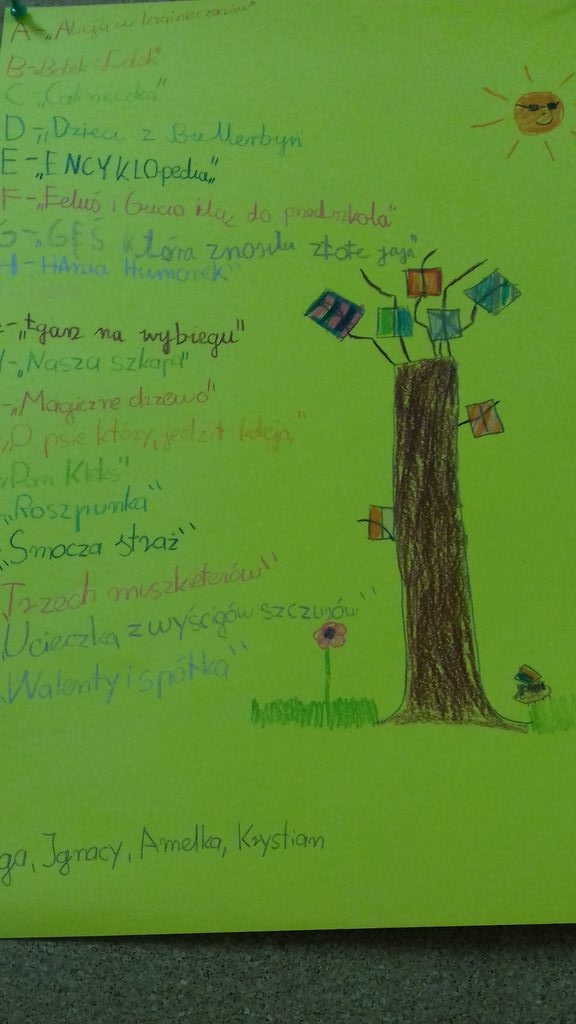 A - „Alicja w krainie czarów"
B - Bolek i Lolek"
C - „Calineczka"
D - „Dzieci z Bullerbyn
E - „ENCYKLOpedia"
F - „Feluś i Gucio idą do przedszkola"
G - „GĘŚ która znosiła złote jaja"
H - HAnia Humorek"
„Łgarz na wybiegu"
- „Nasza szkapa"
- „Magiczne drzewo"
„O psie który, jeździł koleją"
„Pan Kleks"
„Roszpunka"
„Smocza straż"
Trzech muszkieterów"
„Ucieczka z wyścigów szczurów"
„Walenty i spółka"
ga, Ignacy, Amelka, Krystian